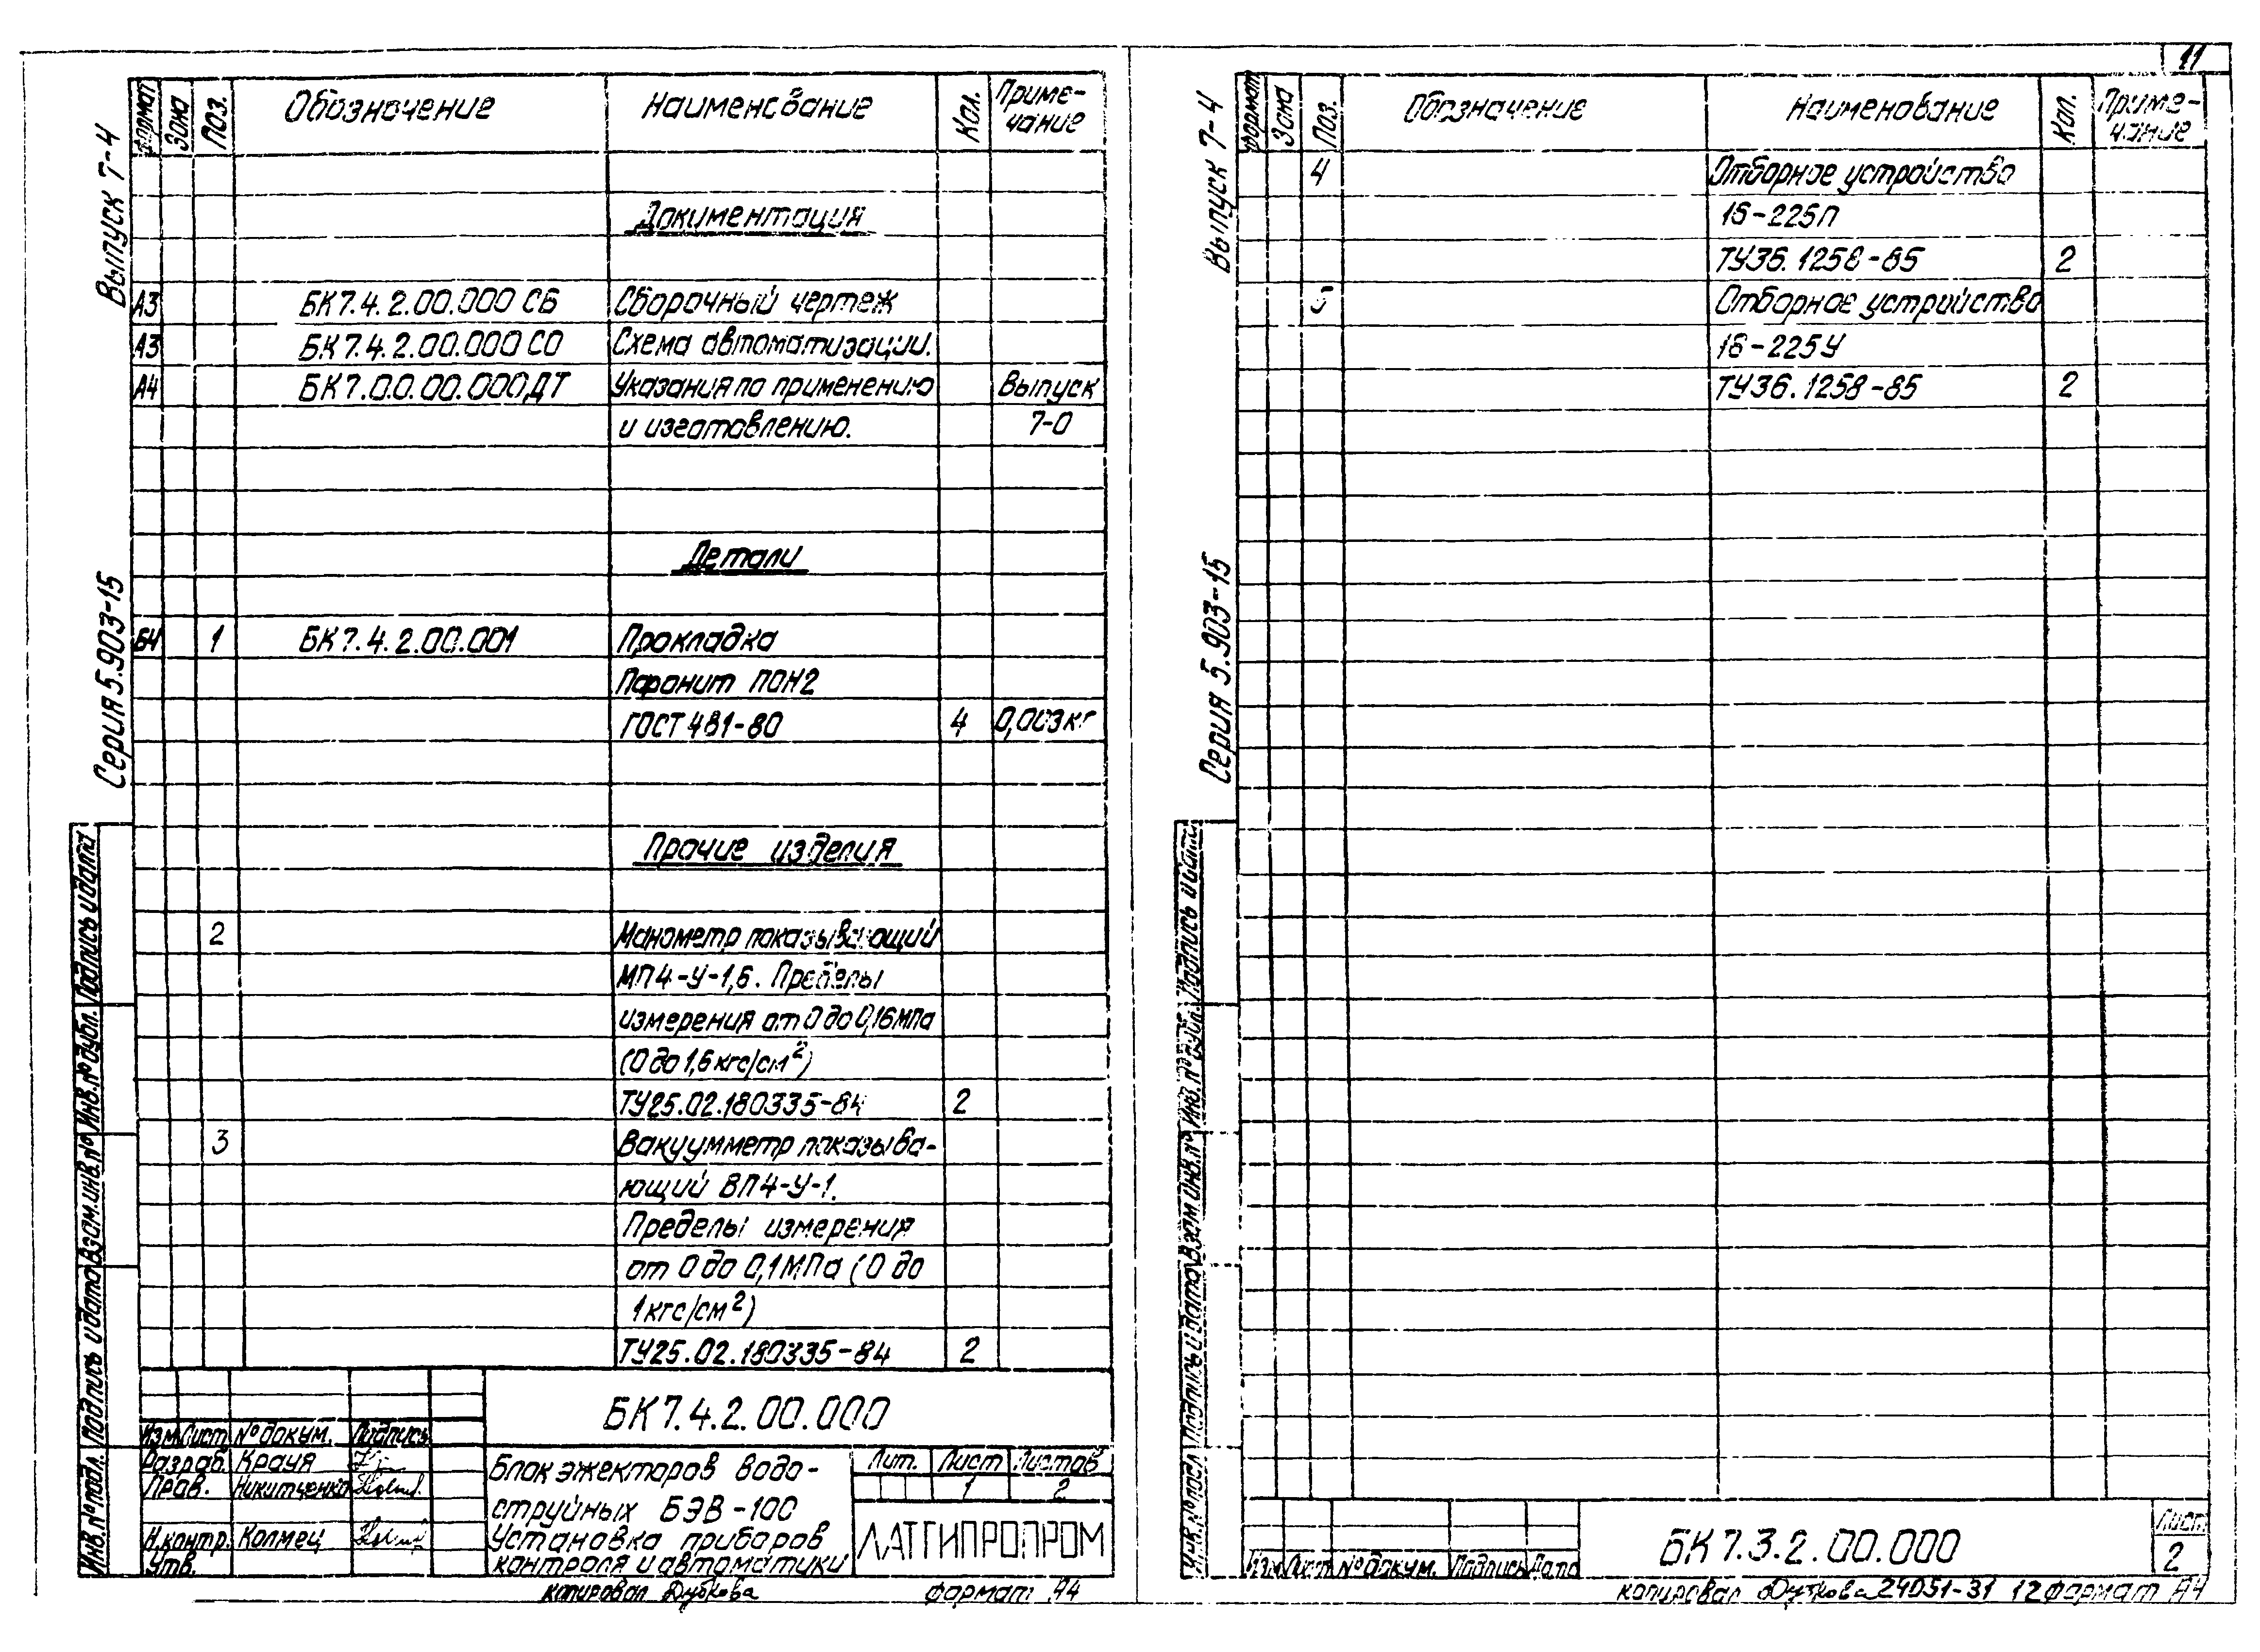 11
Выпуск 7-4
Серия 5.903-15
Формат Зона Поз. Обозначение Наименование Кол. Приме-
чание
Документация
А3 БК7.4.2.00.000 СБ Сборочный чертеж
А3 БК7.4.2.00.000 СО Схема автоматизации.
А4 БК7.0.0.00.000 ДТ Указания по применению Выпуск
и изготовлению. 7-0
Детали
БЧ 1 БК7.4.2.00.001 Прокладка
Паронит ПОН2
ГОСТ 481-80 4 0,003кг
Прочие изделия
2 Манометр показывающий
МП4-У-1,6. Пределы
измерения от 0 до 0,16МПа
(0 до 1,6 кгс/см²)
ТУ25.02.180335-84 2
3 Вакуумметр показыва-
ющий ВП4-У-1.
Пределы измерения
от 0 до 0,1МПа (0 до
1кгс/см²)
ТУ25.02.180335-84 2
Инв.№ подл. Подпись и дата Взам.инв.№ Инв.№ дубл. Подпись и дата
БК7.4.2.00.000
Изм Лист № докум. Подпись
Разраб. Крауя
Пров. Никитченко
Н.контр. Колмец
Утв.
Блок эжекторов водо-
струйных БЭВ-100
Установка приборов
контроля и автоматики
Лит. Лист Листов
1 2
ЛАТГИПРОПРОМ
копировал Дубкова формат А4
Выпуск 7-4
Серия 5.903-15
Формат Зона Поз. Обозначение Наименование Кол. Приме-
чание
4 Отборное устройство
16-225П
ТУ36.1258-85 2
5 Отборное устройство
16-225У
ТУ36.1258-85 2
Инв.№ подл. Подпись и дата Взам.инв.№ Инв.№ дубл. Подпись и дата
Изм Лист № докум. Подпись Дата
БК7.3.2.00.000
Лист
2
копировал Дубкова 24051-31 12 формат А4